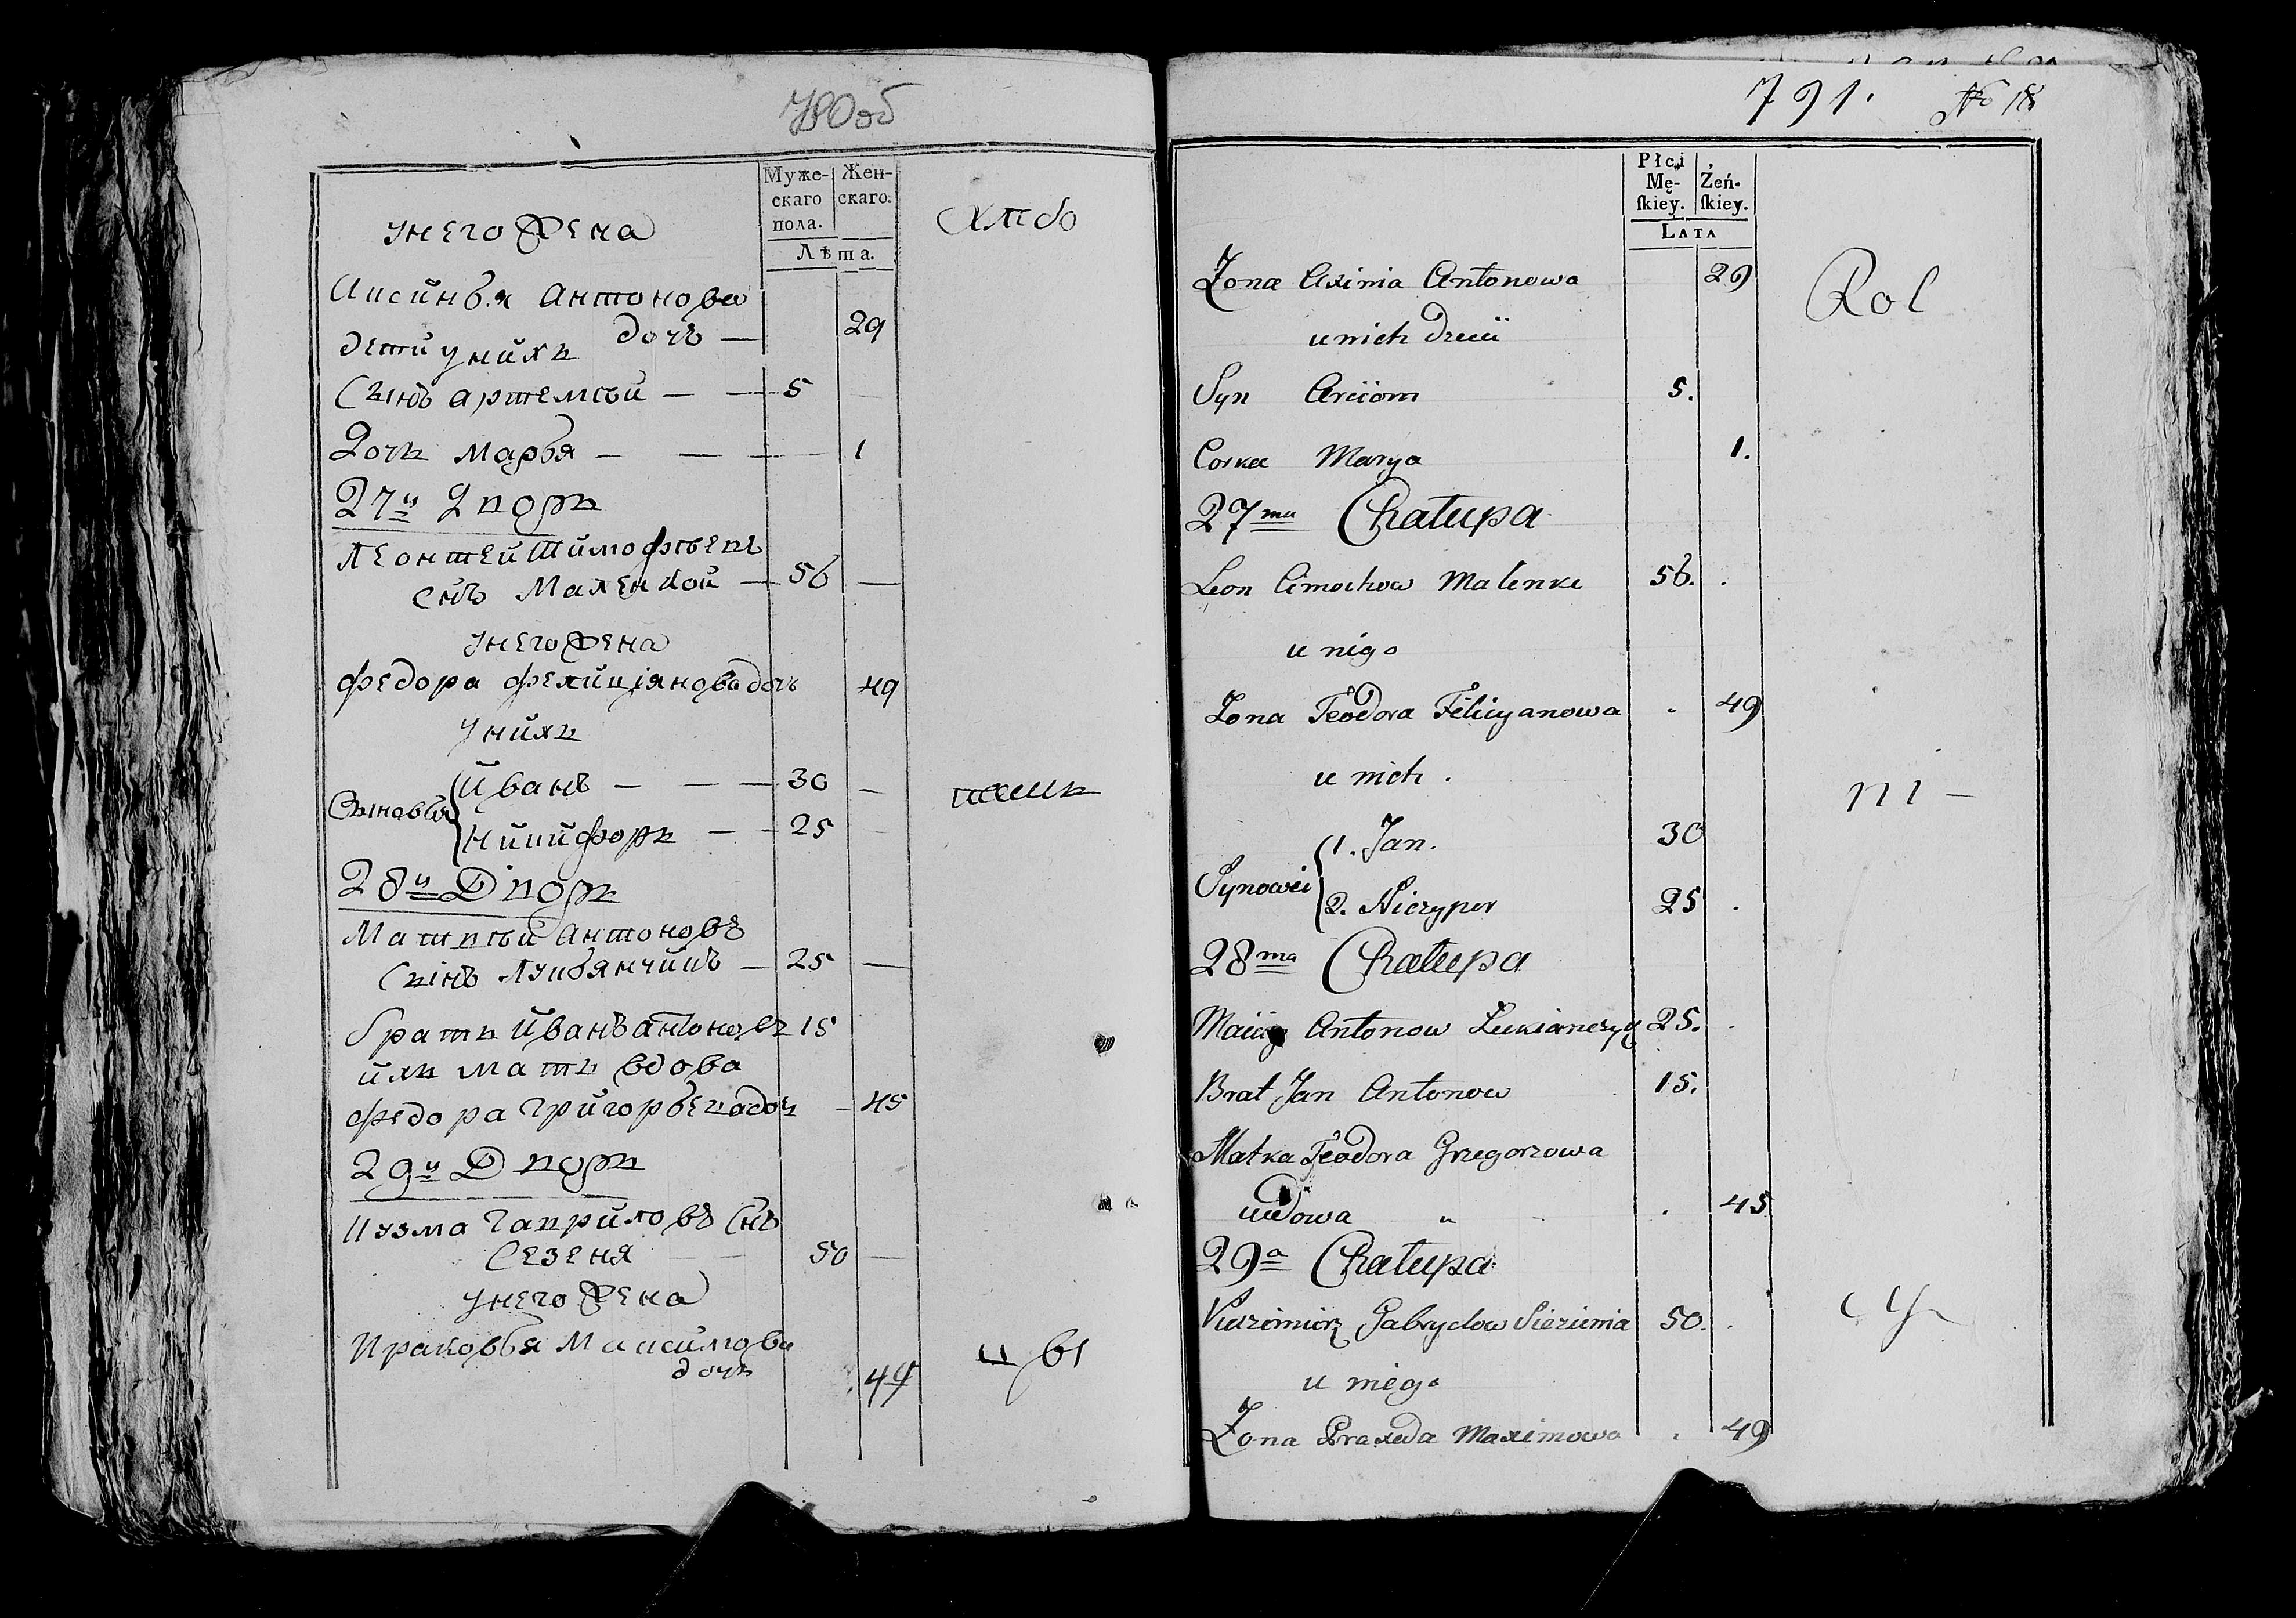 790об
Муже-
скаго
пола.
Жен-
скаго.
Лѣта.
хлебо
унего жена
Аксинья Антонова
дочь — 29
дети унихъ
Сынъ артемей — — 5
Дочь Марья — — — 1
27й Дворъ
Леонтей Тимофѣевъ
снъ Маленкой — 56 —
унего жена
федора фелиціянова дочь 49
унихъ
Сыновья
Иванъ — — — 30 —
Никифоръ — — 25
пашц
28й Дворъ
Матвѣй Антоновъ
Сынъ Лукьянчикъ — 25 —
братъ Иванъ антоновъ 15
ихъ мать вдова
федора Григорьева дочь — 45
29й Дворъ
Кузма Гавриловъ Снъ
Сезеня 50 —
унего жена
Праковья Максимова
дочь 49
цы
791. No 18
Płci
Mę-
skiey.
Żeń-
skiey.
LATA
Żona Axinia Antonowa 29
Rol
u nich dzieci
Syn Arciom 5.
Corka Marya 1.
27ma Chałupa
Leon Cimochow Malenki 56. .
u niego
Żona Teodora Felicyanowa . 49
u nich .
ni -
Synowie
1. Jan. 30
2. Niczypor 25 .
28ma Chałupa
Maciey Antonow Łukianczyk 25. .
Brat Jan Antonow 15.
Matka Teodora Grzegorzowa
wdowa „ . 45
29a Chałupa
Kazimierz Gabryelow Siezienia 50. .
cy
u niego
Żona Praxeda Maximowa . 49